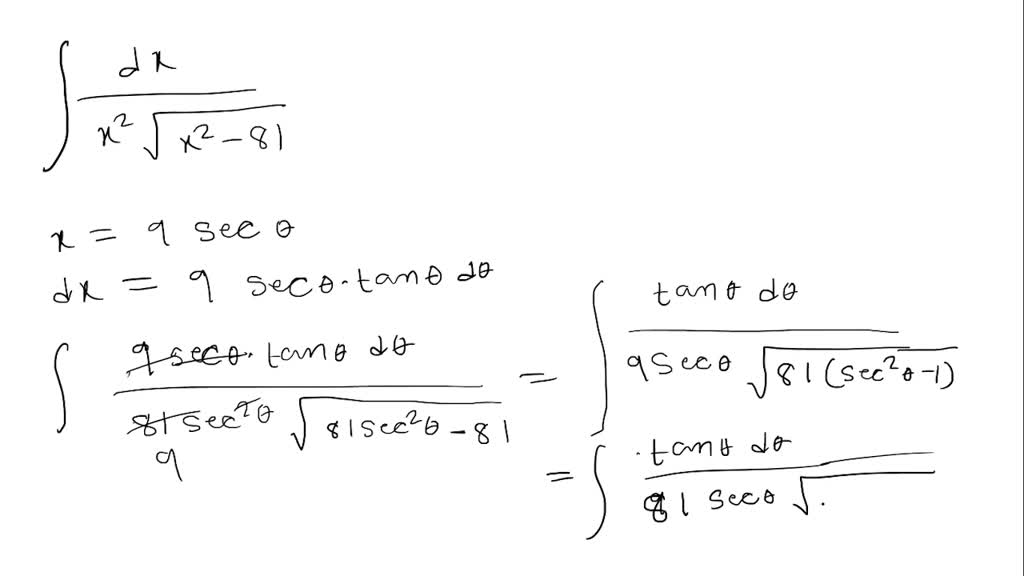 ∫ dx / (x² √(x² − 81))
x = 9 sec θ
dx = 9 secθ · tanθ dθ
∫ 9 secθ · tanθ dθ / (81 sec²θ √(81 sec²θ − 81)) = ∫ tanθ dθ / (9 secθ √(81 (sec²θ − 1)))
9
= ∫ · tanθ dθ / (81 secθ √ .)